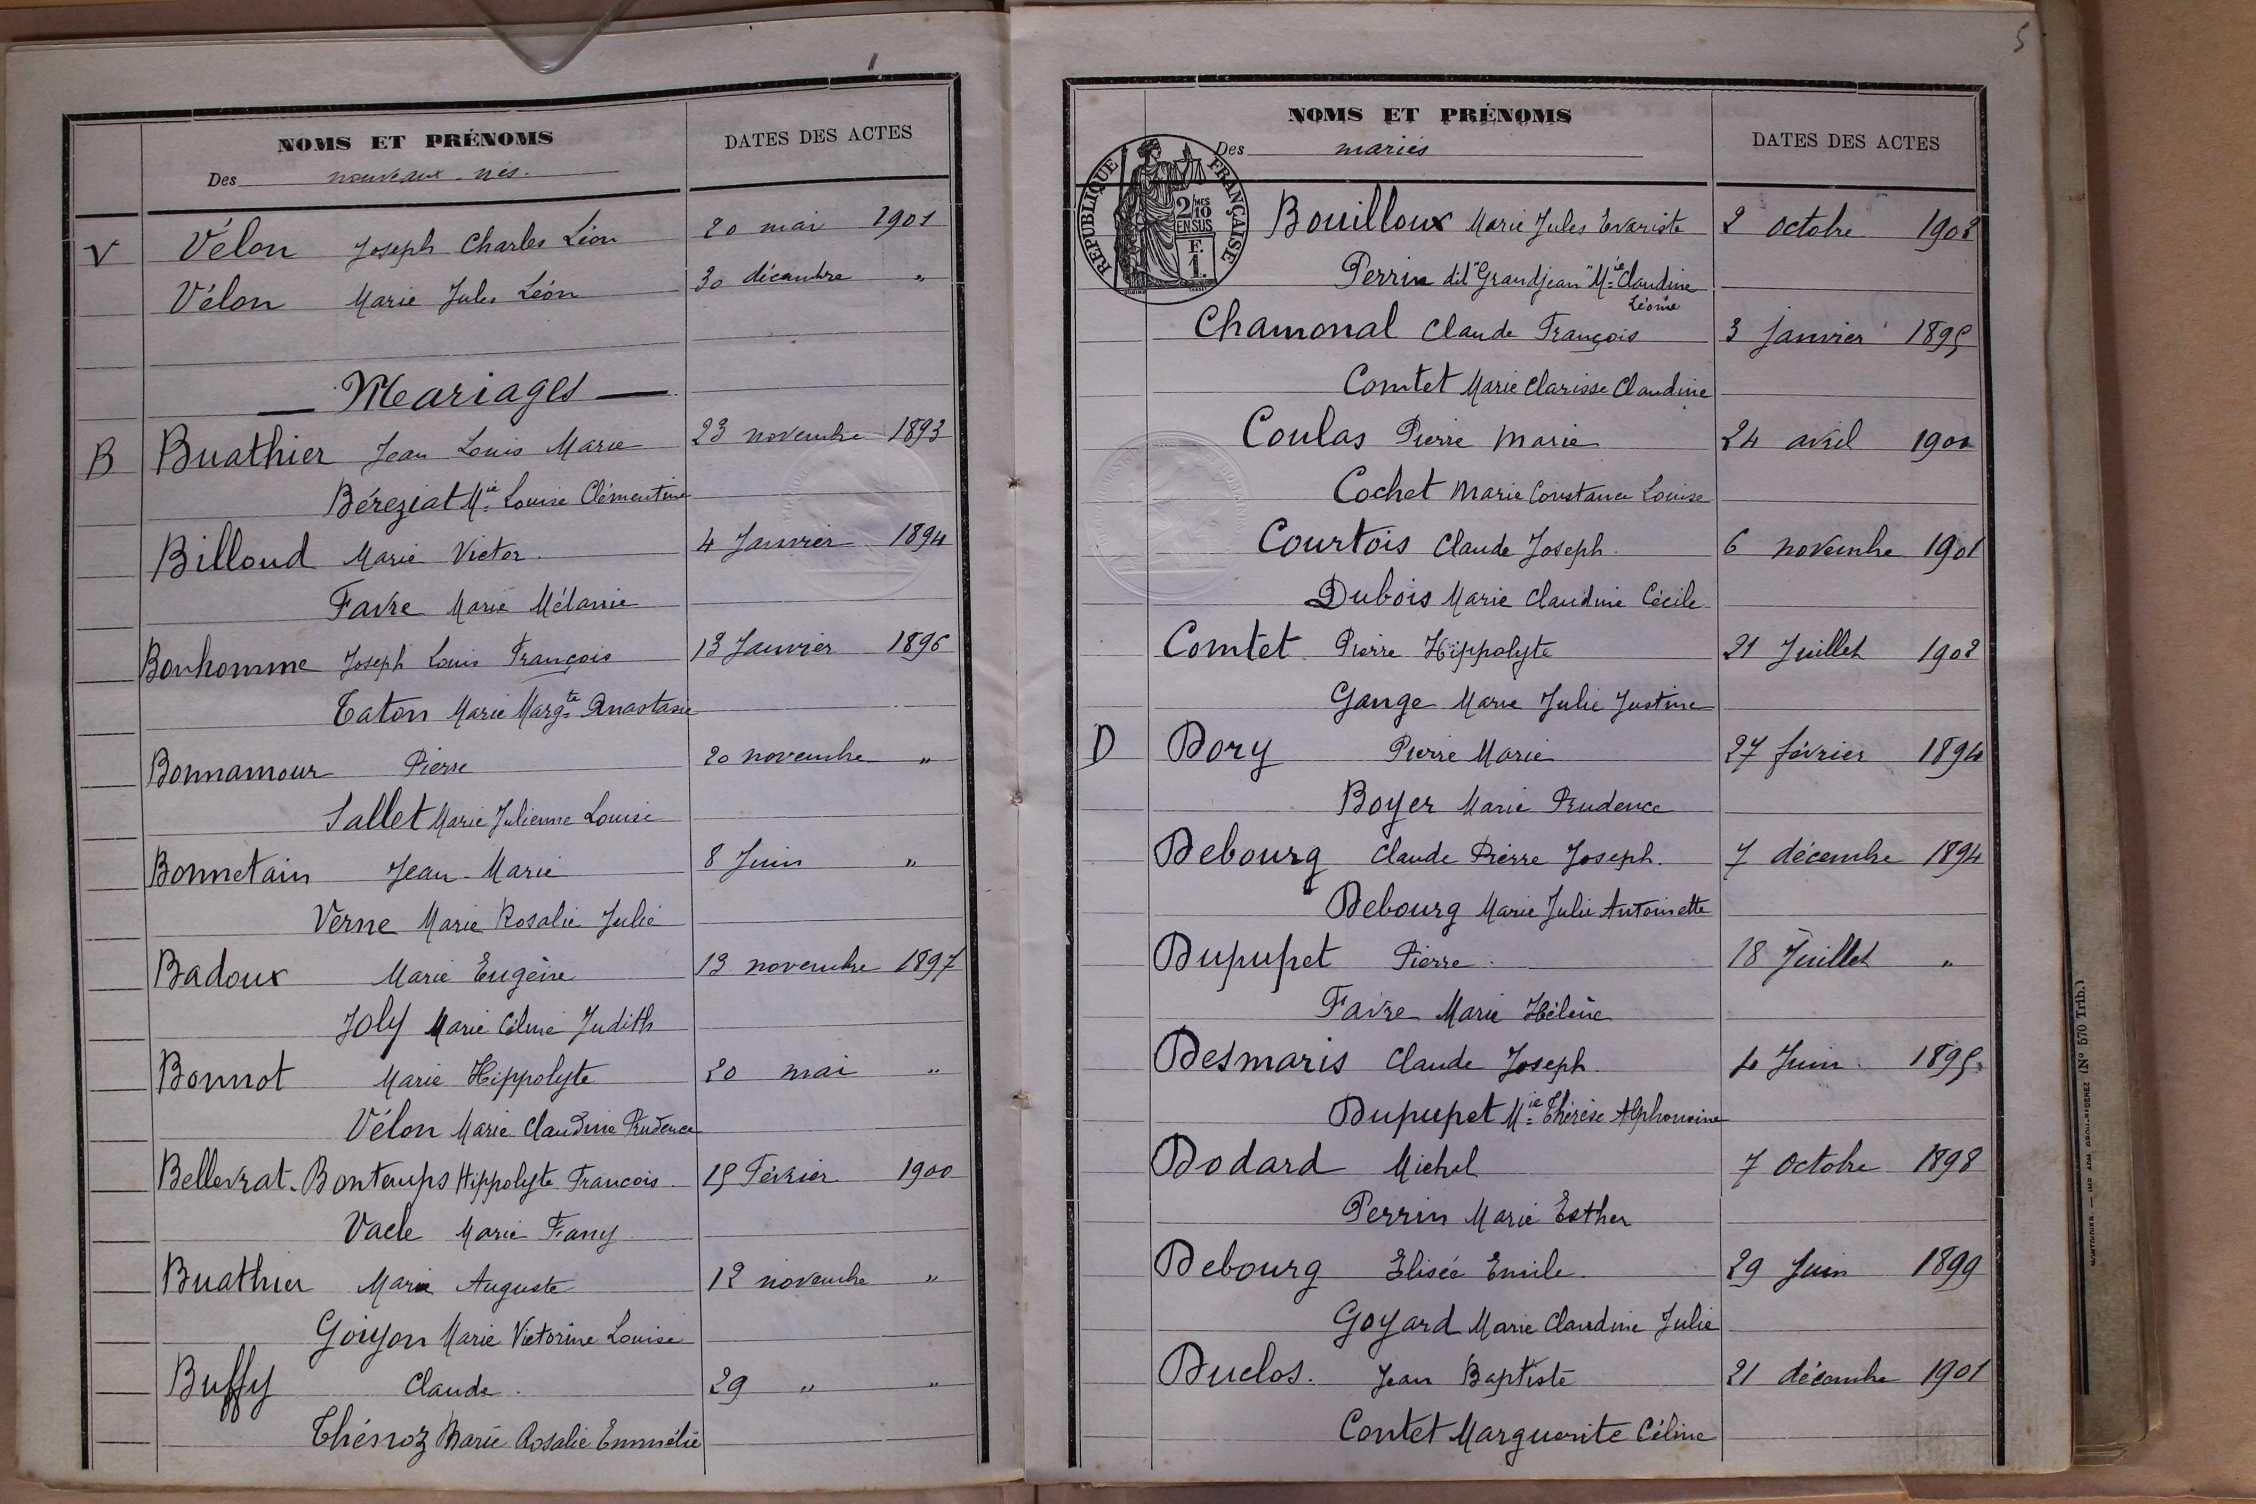 NOMS ET PRÉNOMS
DATES DES ACTES
Des nouveaux-nés.
V Vélon Joseph Charles Léon 20 mai 1901
Vélon Marie Jules Léon 30 décembre "
Mariages
B Buathier Jean Louis Marie 23 novembre 1893
Béreziat Mie Louise Clémentine
Billoud Marie Victor 4 Janvier 1894
Favre Marie Mélanie
Bonhomme Joseph Louis François 13 Janvier 1896
Taton Marie Margte Anastasie
Bonnamour Pierre 20 novembre "
Sallet Marie Julienne Louise
Bonnetain Jean-Marie 8 Juin "
Verne Marie Rosalie Julie
Badoux Marie Eugène 13 novembre 1897
Joly Marie Céline Judith
Bonnot Marie Hippolyte 20 mai "
Vélon Marie Claudine Prudence
Bellevrat-Bontemps Hippolyte François 15 Février 1900
Vacle Marie Fany
Buathier Marie Auguste 12 novembre "
Goiyon Marie Victorine Louise
Buffy Claude 29 " "
Thénoz Marie Rosalie Emmélie
5
NOMS ET PRÉNOMS
DATES DES ACTES
Des mariés
RÉPUBLIQUE FRANÇAISE
2/10MES
EN SUS
F.
1.
Bouilloux Marie Jules Evariste 2 octobre 1902
Perrin dit "Grandjean" Mie Claudine
Léonie
Chamonal Claude François 3 janvier 1895
Comtet Marie Clarisse Claudine
Coulas Pierre Marie 24 avril
Cochet Marie Constance Louise
Courtois Claude Joseph 6 novembre 1901
Dubois Marie Claudine Cécile
Comtet Pierre Hippolyte 21 Juillet 1902
Gange Marie Julie Justine
D Dory Pierre Marie 27 février 1894
Boyer Marie Prudence
Debourg Claude Pierre Joseph 7 décembre 1894
Debourg Marie Julie Antoinette
Dupupet Pierre 18 Juillet "
Faivre Marie Hélène
Desmaris Claude Joseph Juin 1895
Dupupet Mie Thérèse Alphonsine
Dodard Michel 7 Octobre 1898
Perrin Marie Esther
Debourg Elisée Emile 29 Juin 1899
Goyard Marie Claudine Julie
Duclos. Jean Baptiste 21 décembre 1901
Contet Marguerite Céline
(No 570 Trib.)